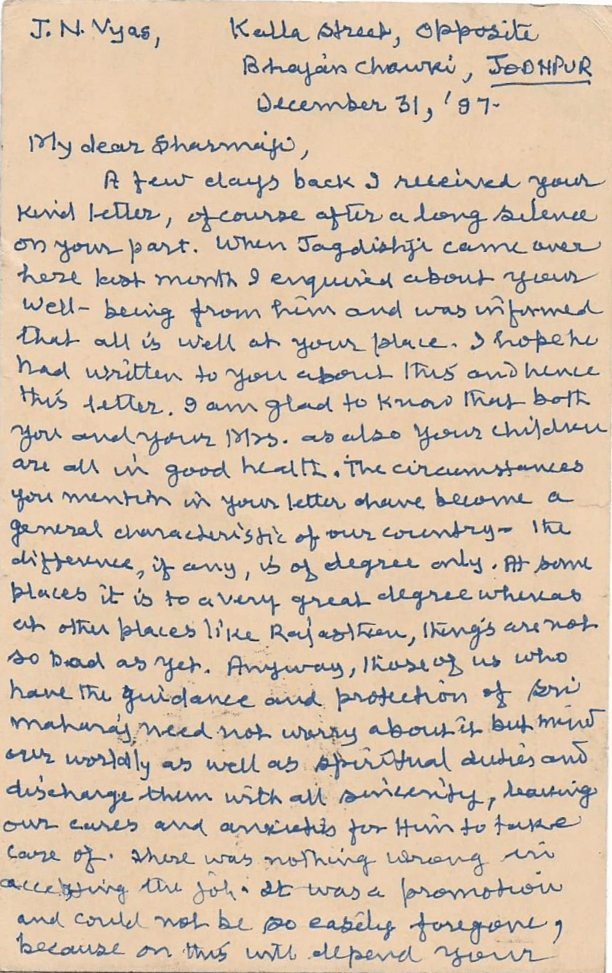 J. N. Vyas, Kalla Street, Opposite
Bhajan Chowki, JODHPUR
December 31, '97-
My dear Sharmaji,
A few days back I received your
kind letter, ofcourse after a long silence
on your part. When Jagdishji came over
here last month I enquired about your
well-being from him and was informed
that all is well at your place. I hope he
had written to you about this and hence
this letter. I am glad to know that both
you and your Mrs. as also your children
are all in good health. The circumstances
you mention in your letter have become a
general characteristic of our country- the
difference, if any, is of degree only. At some
places it is to a very great degree whereas
at other places like Rajasthan, things are not
so bad as yet. Anyway, those of us who
have the guidance and protection of Sri
Maharaj need not worry about it but mind
our worldly as well as spiritual duties and
discharge them with all sincerity, leaving
our cares and anxieties for Him to take
care of. There was nothing wrong in
accepting the job. It was a promotion
and could not be so easily foregone,
because on this will depend your